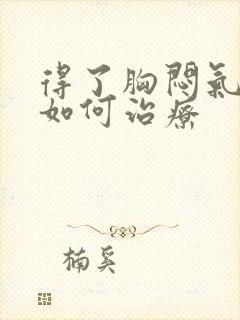 得了胸悶氣
如何治療
楠奚